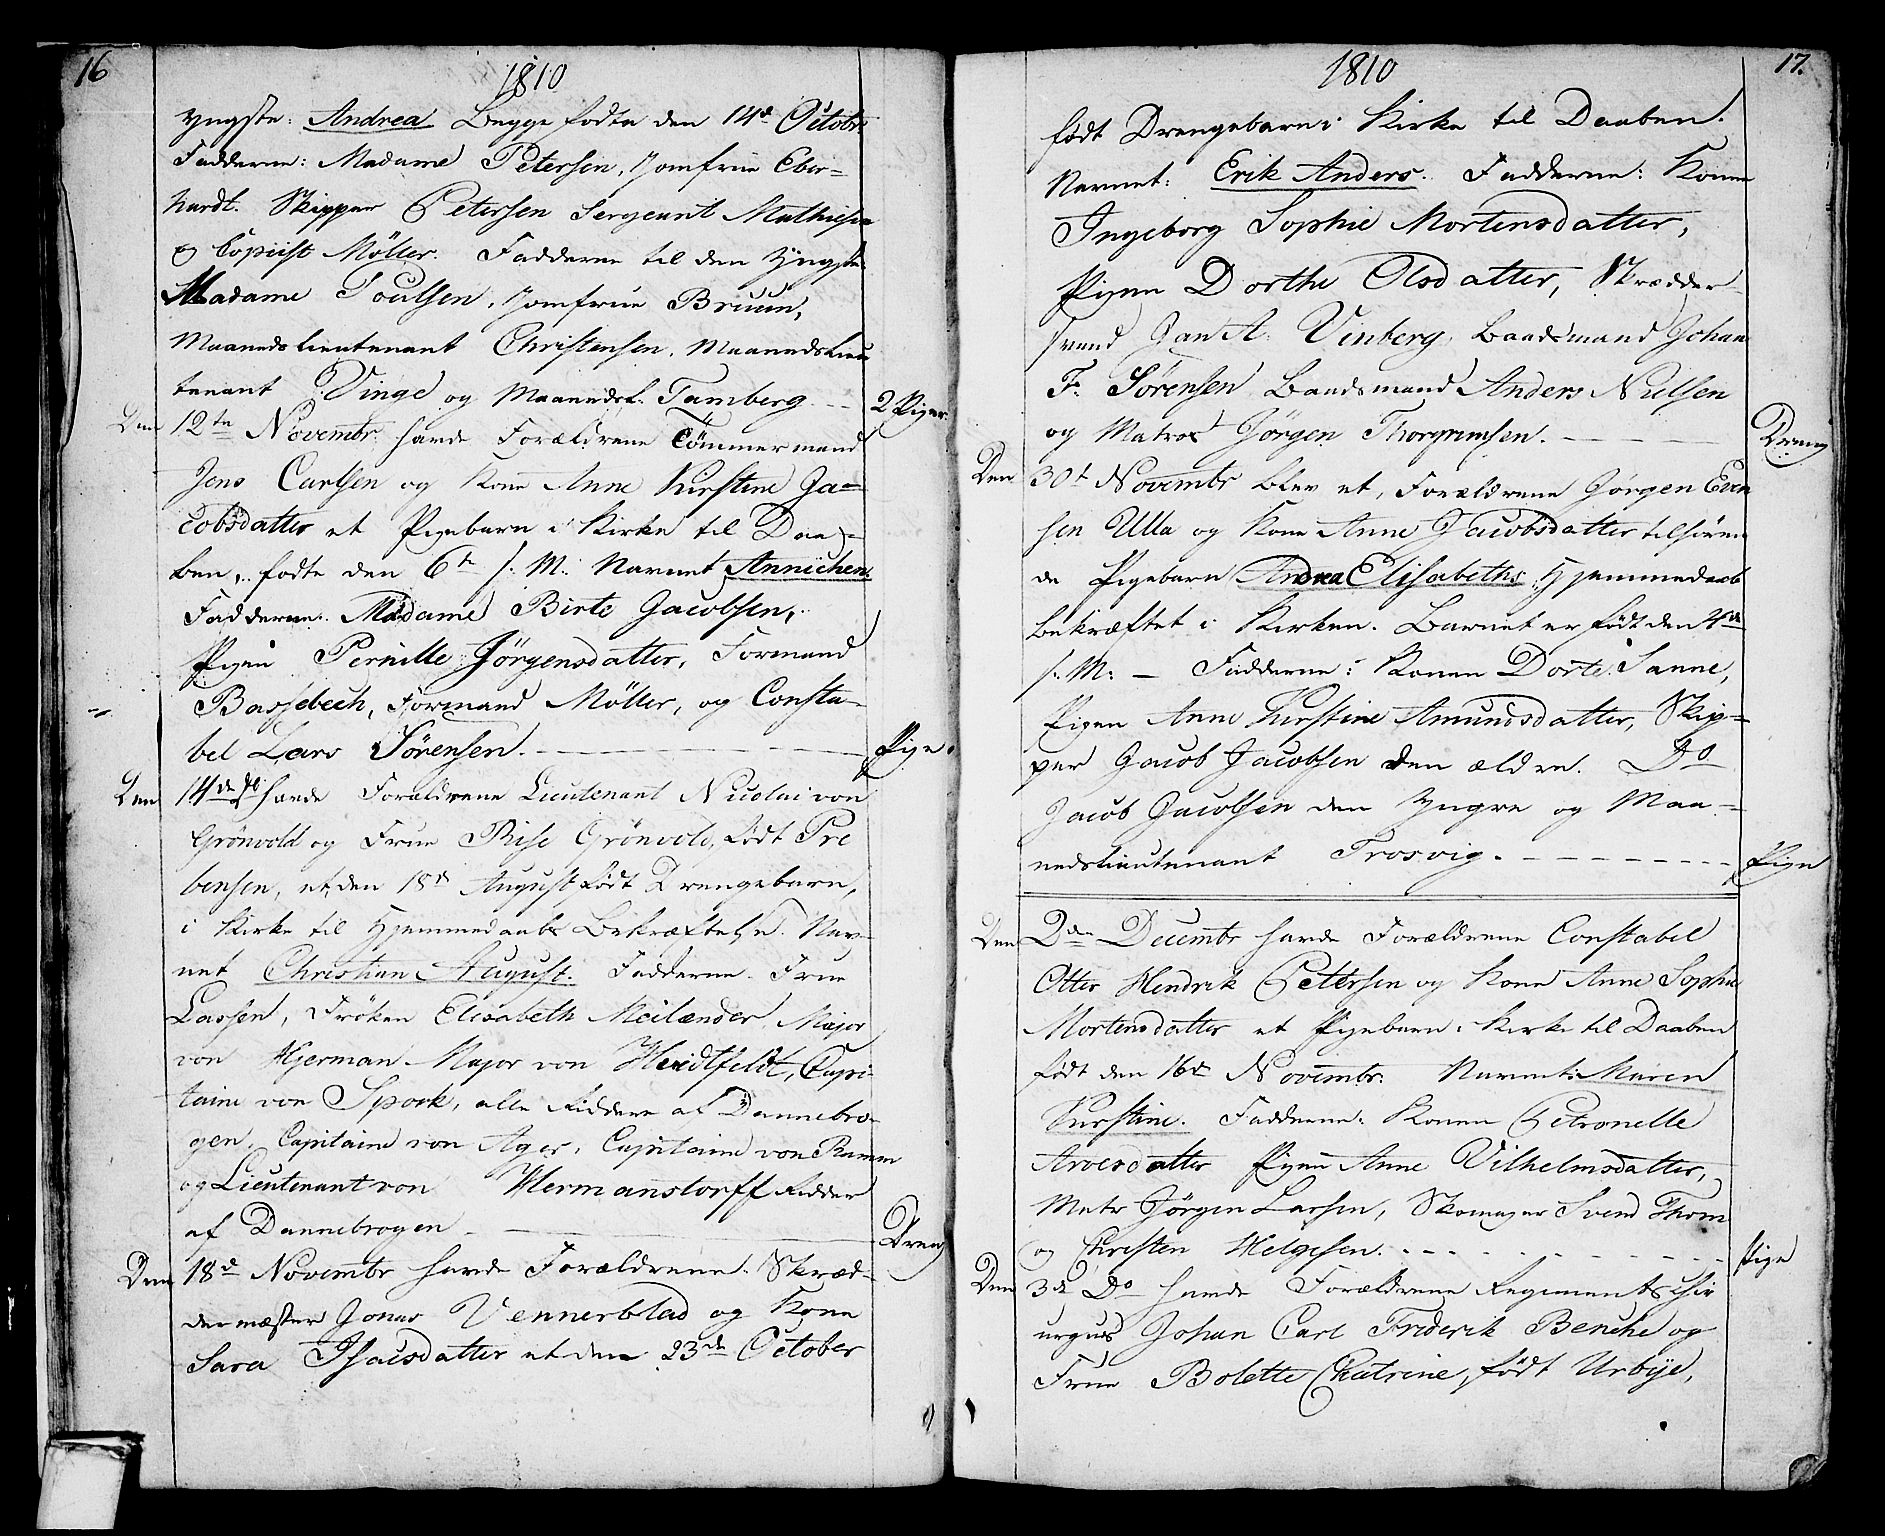 16
1810
yngste: Andrea Begge fødte den 14d Octobr
Fadderne: Madame Petersen, Jomfrue Eber-
hardt. Skipper Petersen Sergeant Mathiesen
og Copiist Möller. Fadderne til den Yngste:
Madame Poulsen, Jomfrue Bruun,
Maanedslieutenant Christensen, Maanedslieu
tenant Vinge og Maanedsl. Tamberg. — 2 Piger
Den 12te Novembr. havde Forældrene Tömmermand
Jens Carlsen og Kone Anne Kirstine Ja-
cobsdatter et Pigebarn i Kirke til Daa-
ben, fødte den 6te s. M. Navnet Annichen.
Fadderne. Madame Birte Jacobsen,
Pigen Pernille Jörgensdatter, Formand
Bassebech, Formand Möller, og Consta-
bel Lars Sörensen. — Pige.
Den 14de Do havde Forældrene Lieutenant Nicolai von
Grönvold og Frue Rise Grönvold, født Pre
bensen, et, den 18d August født Drengebarn,
i Kirke til Hjemmedaabs Bekræftelse. Nav-
net Christian August. Fadderne. Frue
Lassen, Fröken Elisabeth Meilænder, Major
von Hjerman Major von Heidtfeldt, Capi-
taine von Spork, alle Riddere af Dannebro-
gen, Capitaine von Ager, Capitaine von Ramm
og Lieutenant von Hermanstorff Ridder
af Dannebrogen — Dreng
Den 18d Novembr havde Forældrene Skræd-
dermæster Jonas Vennerblad og Kone
Sara Isacsdatter et den 23de October
17.
1810
født Drengebarn i Kirke til Daaben.
Navnet: Erik Anders. Fadderne: Konen
Ingeborg Sophie Mortensdatter,
Pigen Dorthe Olsdatter, Skrædder-
svend Jan A. Vinberg, Baadsmand Johan
F. Sörensen, Baadsmand Anders Nielsen
og Matros Jörgen Thorgrimsen. — Dreng
Den 30t Novembr blev et, Forældrene Jörgen Even
sen Ulla og Kone Anne Jacobsdatter tilhören
de Pigebarn Andrea Elisabeths Hjemmedaab
bekræftet i Kirken. Barnet er født den 4de
s. M. — Fadderne: Konen Dorte Sanne,
Pigen Anne Kirstine Amundsdatter, Skip-
per Jacob Jacobsen den ældre. Do
Jacob Jacobsen den Yngre og Maa-
nedslieutenant Trosvig. — Pige
Den 2den Decembr havde Forældrene Constabel
Otter Hendrik Petersen og Kone Anne Sophie
Mortensdatter et Pigebarn i Kirke til Daaben
født den 16de Novembr. Navnet: Maren
Kirstine. Fadderne: Konen Petronelle
Arvesdatter Pigen Anne Vilhelmsdatter,
Matr Jörgen Larsen, Skomager Svend Thom
og Christen Helgesen. — Pige
Den 3de Do havde Forældrene Regiments Chir
urgus Johan Carl Friderik Benche og
Frue Bolette Chatrine, født Urbye,